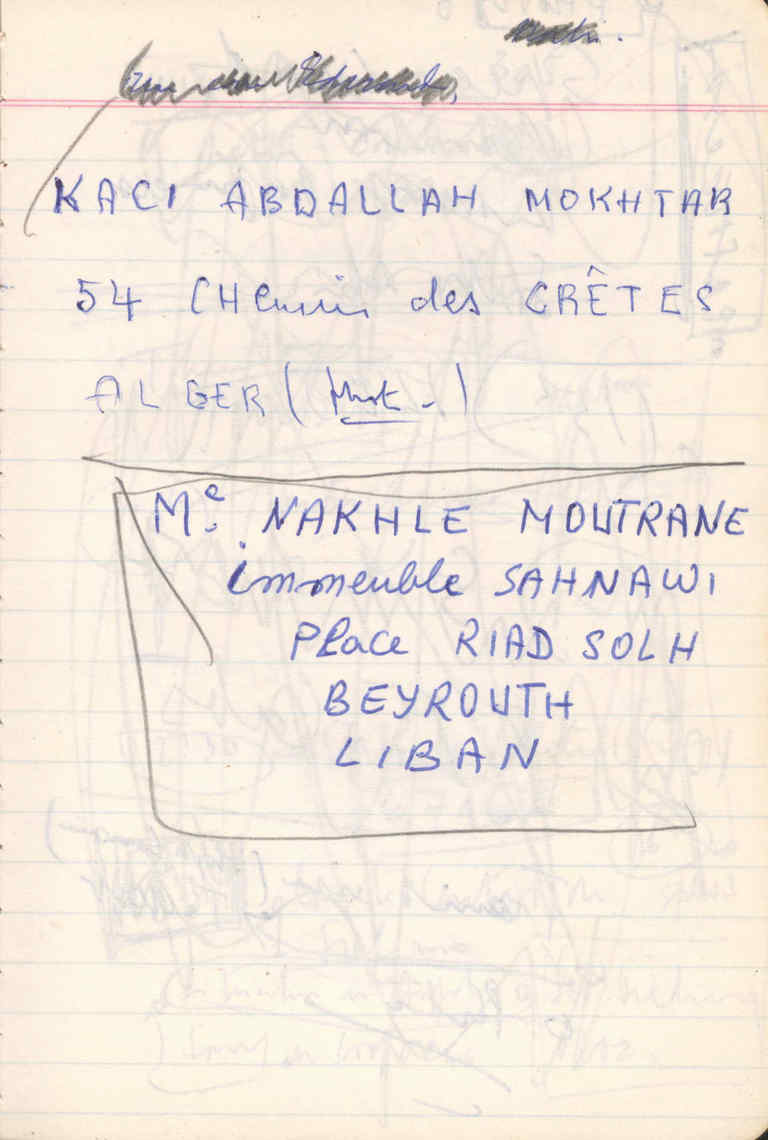 KACI ABDALLAH MOKHTAR
54 CHemin des CRÊTES
ALGER (
Me. NAKHLE MOUTRANE
immeuble SAHNAWI
Place RIAD SOLH
BEYROUTH
LIBAN